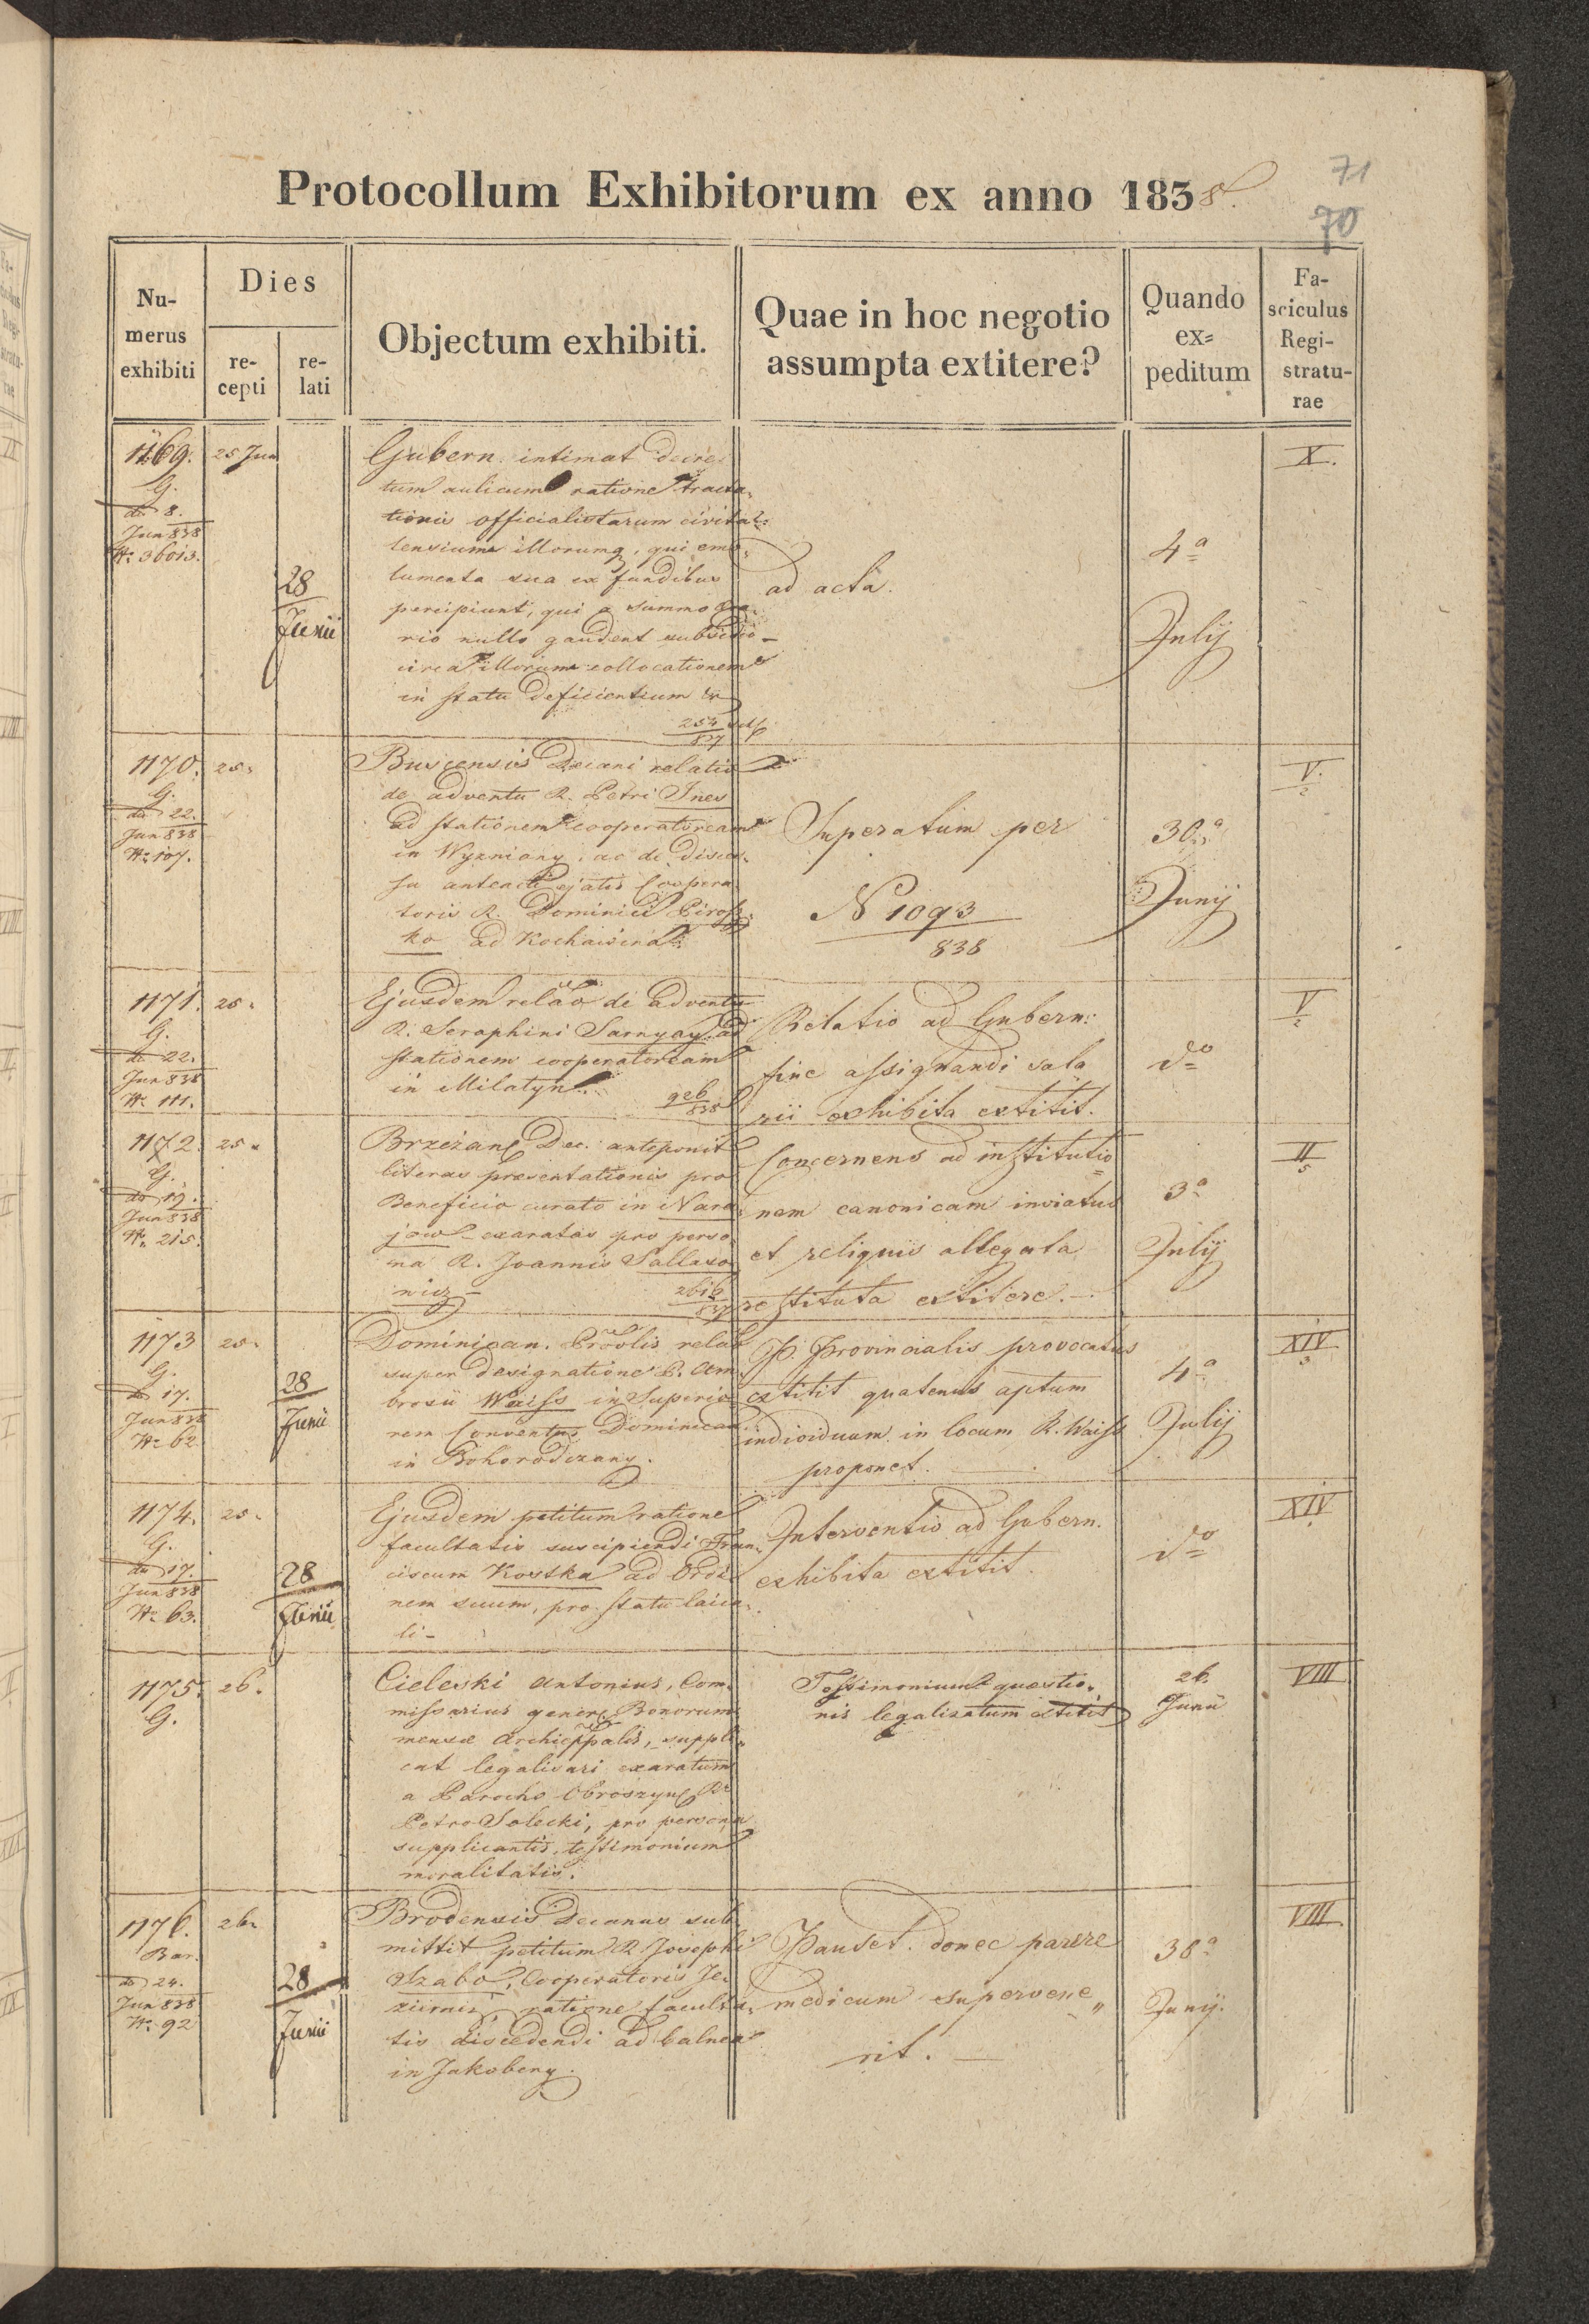 71
70
Protocollum Exhibitorum ex anno 1838.
Nu-
merus
exhibiti
Dies
re-
cepti
re-
lati
Objectum exhibiti.
Quae in hoc negotio
assumpta extitere?
Quando
ex=
peditum
Fa-
sciculus
Regi-
stratu-
rae
1169.
G.
do 8.
Jun 838
N: 36013.
25 Jun
28
Junii
Gubern. intimat decre
tum aulicum ratione tracta,
tionis officialistarum civita,
tensium illorumq, qui emo,
lumenta sua ex fundibus
percipiunt, qui a summo
rio nullo gaudent subsidio
circa illorum collocationem
in statu deficientium
254
827
ad acta.
4a
Julij
X.
1170.
G.
do 22.
Jun 838
N: 107.
25.
Buscensis Decani relatio
de adventu R. Petri Ines
ad stationem cooperatoream
in Wyzniany, ac de disces,
su anteacti ejatis Coopera
toris R. Dominici Pirosz
ko ad Kochawina.
Superatum per
N 1093
838
30a
Junij
V.
2
1171.
G.
do 22.
Jun 838
N: 111.
25.
Ejusdem relao de adventu
R. Seraphini Sarnyay ad
stationem cooperatoream
in Milatyn.
926
838
Relatio ad Gubern:
fine assignandi sala
rii exhibita extitit.
do
V
2
1172.
G.
do 19.
Jun 838
N. 215.
25.
Brzeżan Dec. anteponit
literas praesentationis pro
Beneficio curato in Nara
jow exaratas pro perso,
na R. Joannis Sallaso
nicz
2616
837
Concernens ad institutio
nem canonicam inviatus
et reliquis allegata
restituta extitere.
3a
Julij
II
5
1173
G.
do 17.
Jun 838
N: 62.
25.
28
Junii
Dominican. Provlis relat
super designatione P. Am
brosii Waiss in Superio
rem Conventus Dominican
in Bohorodczany.
P. Provincialis provocatus
extitit quatenus aptum
individuum in locum R. Waiss
proponet.
4a
Julij
XIV
3
1174.
G.
do 17.
Jun 838
N: 63.
25.
28
Junii
Ejusdem petitum ratione
facultatis suscipiendi Fran,
ciscum Kostka ad Ordi
nem suum, pro statu laica,
li-
Interventio ad Gubern.
exhibita extitit.
do
XIV
1175.
G.
26.
Cieleski Antonius, Com,
missarius gener Bonorum
mensae Archieppalis, suppli,
cat legalisari exaratum
a Parocho Obroszyn
Petro Solecki, pro persona
supplicantis, testimonium
moralitatis.
Testimonium quaestio,
nis legalizatum extitit
26.
Junii
VIII
1176.
Bar.
do 24.
Jun 838
N: 92
26.
28
Junii
Brodensis Decanus sub
mittit petitum R. Josephi
Szabo, Cooperatoris Je,
ziernis ratione faculta,
tis discedendi ad balnea
in Jakobeny.
Pauset. donec parere
medicum supervene,,
rit.
30a
Junij.
VIII.